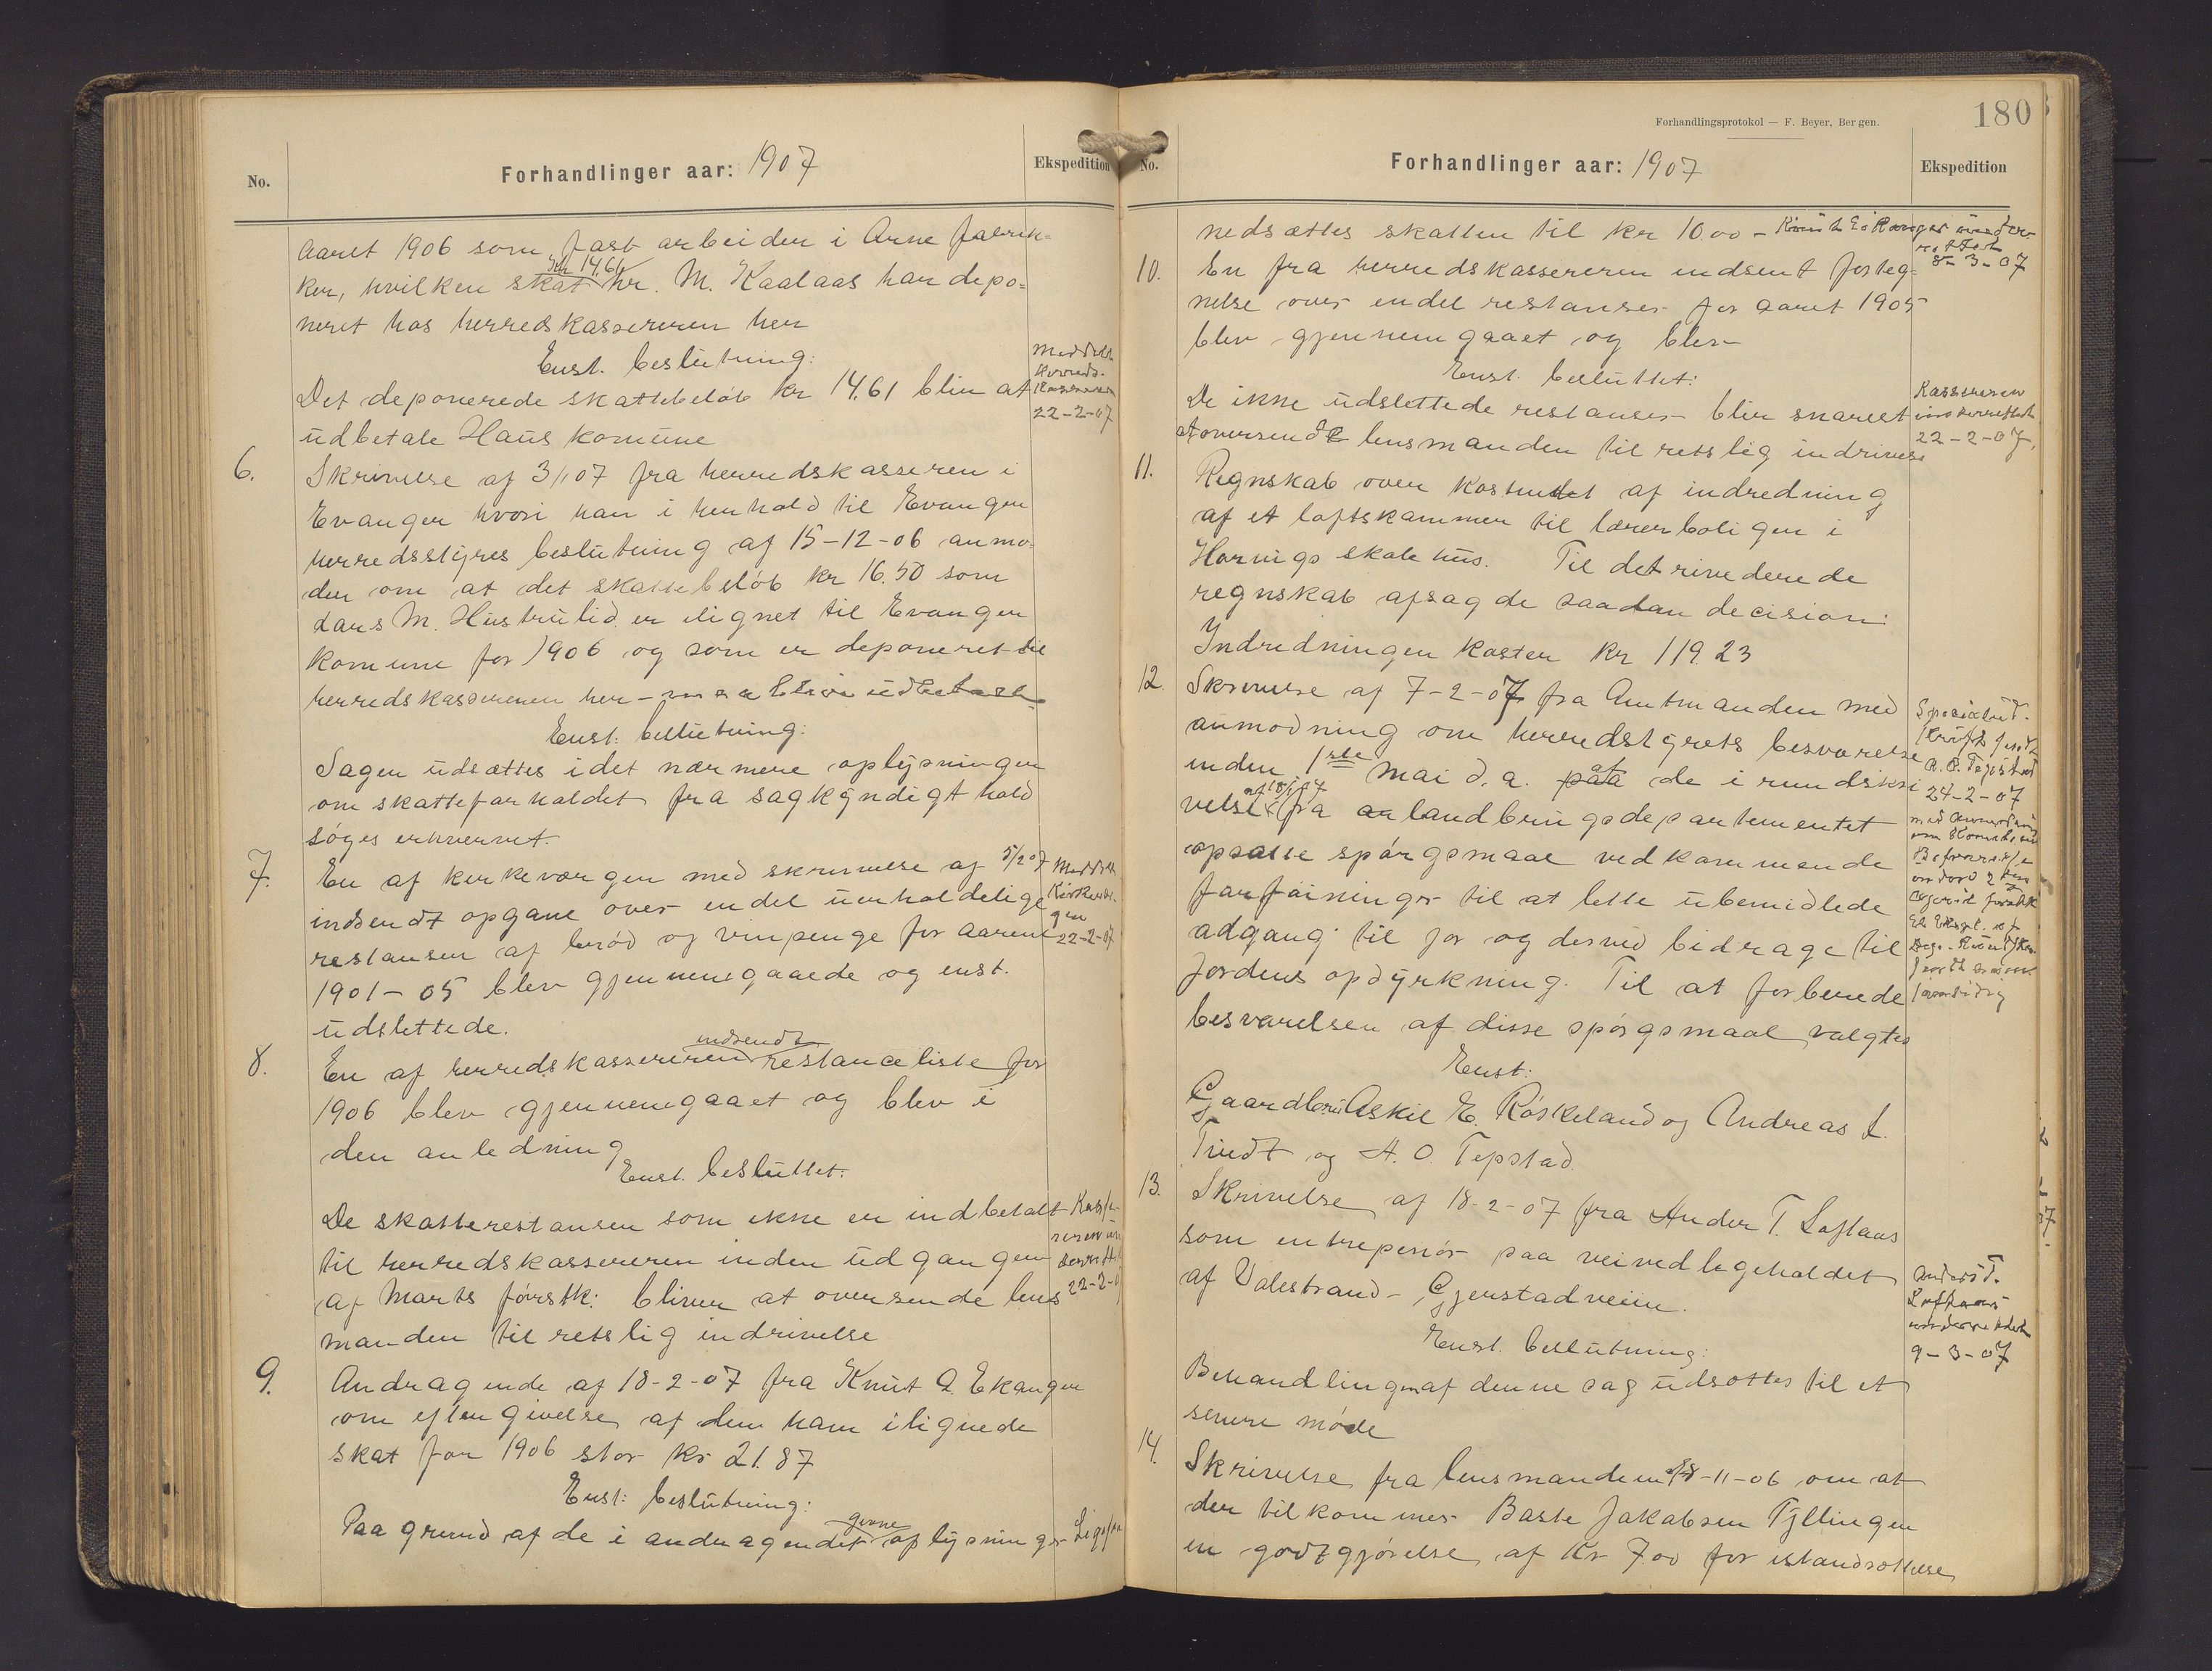 No.
Forhandlinger aar: 1907
Ekspedition
aaret 1906 som fast arbeider i Arne fabrik-
ker, hvilken skat kr 14.61 hr. M. Kaalaas har depo-
neret hos herredskassereren her
Enst. beslutning:
Det deponerede skattebeløb kr 14.61 blir at
udbetale Haus komune
Meddelt
herreds-
kassereren
22-2-07
6.
Skrivelse af 3/1 07 fra herredskasseren i
Evanger hvori han i henhold til Evanger
herredsstyres beslutning af 15-12-06 anmo-
der om at det skattebeløb kr 16.50 som
Lars M. Hustrulid er ilignet til Evanger
komune for 1906 og som er deponeret til
herredskassereren her - maa blive udbetalt
Enst. beslutning:
Sagen udsættes idet nærmere oplysninger
om skatteforholdet fra sagkyndigt hold
søges erhvervet.
7.
En af kirkeværgen med skrivelse af 5/2 07
indsendt opgave over endel uerholdelige
restanser af brød og vinpenge for aarene
1901-05 blev gjennemgaaede og enst.
udslettede.
Meddelt
Kirkevær-
gen
22-2-07
8.
En af herredskassereren indsendt restanceliste for
1906 blev gjennemgaaet og blev i
den anledning
Enst. besluttet:
De skatterestanser som ikke er indbetalt
til herredskassereren inden udgangen
af Marts førstk: bliver at oversende lens
manden til retslig indrivelse
Kasse-
reren un
derrettet
22-2-0
9.
Andragende af 18-2-07 fra Knut A Ekanger
om eftergivelse af den ham ilignede
skat for 1906 stor kr 21.87
Enst: beslutning:
Paa grund af de i andragendet givne oplysninger
180
Forhandlingsprotokol — F. Beyer, Bergen.
No.
Forhandlinger aar: 1907
Ekspedition
nedsættes skatten til kr 10.00 -
8-3-07
10.
En fra herredskassereren indsent forteg-
nelse over endel restanser for aaret 1905
blev gjennemgaaet og blev
Enst. besluttet:
De ikke udslettede restanser blir snarest
at oversende lensmanden til retslig indrivelse
Kassereren
underrettet
22-2-07.
11.
Regnskab over kostnadet af indredning
af et loftskammer til lærerboligen i
Hornings skolehus. Til det rividerede
regnskab afsagde saadan decision:
Indredningen koster kr 119.23
12.
Skrivelse af 7-2-07 fra Amtmanden med
anmodning om herredstyrets besvarelse
inden 1ste mai d. a. paa af de i rundskri
velse fra landbrugsdepartementet
opsatte spørgsmaal vedkommende
forføininger til at lette ubemidlede
adgang til jor og derved bidrage til
jordens opdyrkning. Til at forberede
besvarelsen af disse spørgsmaal valgtes
Enst:
Gaardbru Askil E. Røskeland og Andreas L.
Tvedt og A. O. Tepstad.
24-2-07
13.
Skrivelse af 18-2-07 fra Ander T. Loftaas
som entrepenør paa veivedlegeholdet
af Valestrand - Gjerstadveien.
Enst. beslutning:
Behandlingen af denne sag udsættes til et
senere møde
Anders T.
Loftaas
underrettet
9-3-07
14.
Skrivelse fra lensmanden af 18-11-06 om at
der tilkommer Baste Jakobsen Tyllingen
en godtgjørelse af kr 7.00 for istandsættelse